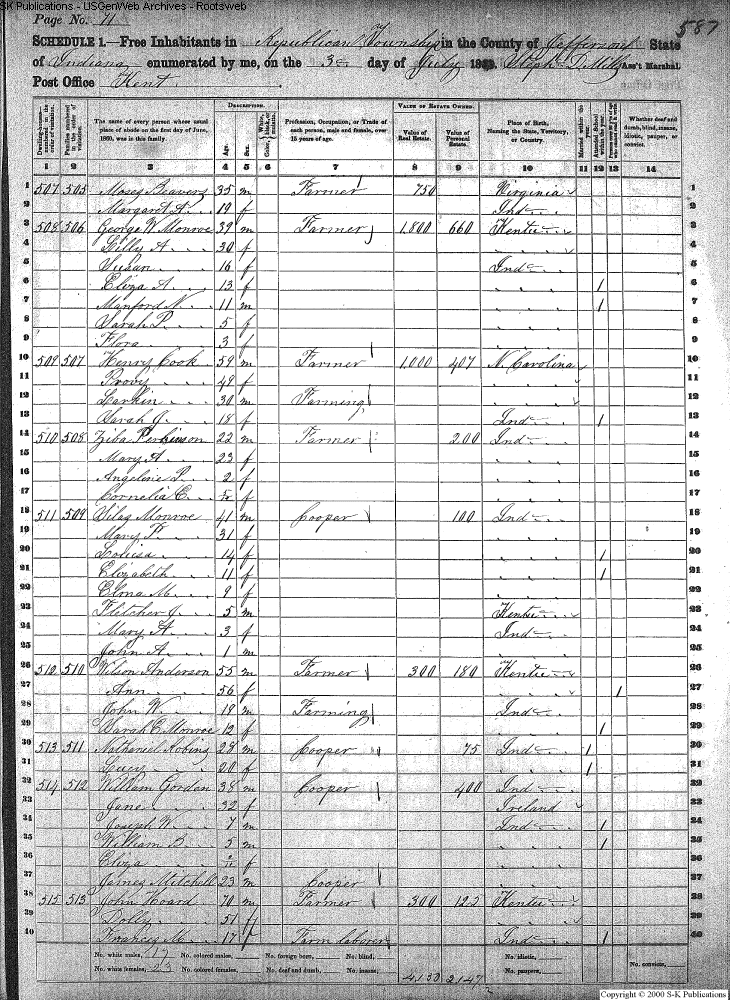 S-K Publications - USGenWeb Archives - Rootsweb
Page No. 71
587
SCHEDULE 1.—Free Inhabitants in Republican Township in the County of Jefferson State
of Indiana enumerated by me, on the 3d day of July 18 Ass't Marshal
Post Office Kent
DESCRIPTION. VALUE OF ESTATE OWNED.
Dwelling-houses—numbered in the order of visitation. Families numbered in the order of visitation. The name of every person whose usual place of abode on the first day of June, 1860, was in this family. Age. Sex. Color, White, black, or mulatto. Profession, Occupation, or Trade of each person, male and female, over 15 years of age. Value of Real Estate. Value of Personal Estate. Place of Birth, Naming the State, Territory, or Country. Married within the year. Attended School within the year. Whether deaf and dumb, blind, insane, idiotic, pauper, or convict.
1 2 3 4 5 6 7 8 9 10 11 12 13 14
1 507 505 Moses Beavers 35 m Farmer 750 Virginia 1
2 Margaret A. 19 f Ind 2
3 508 506 George W. Monroe 39 m Farmer 1,800 660 Kentu 3
4 Lilly A. 30 f " 4
5 Susan 16 f Ind 5
6 Eliza A. 13 f " 1 6
7 Manford N. 11 m " 1 7
8 Sarah P. 5 f " 8
9 Flora 3 f " 9
10 509 507 Henry Cook 59 m Farmer 1,000 407 N. Carolina 10
11 Provy 49 f " 11
12 Larkin 30 m Farming " 12
13 Sarah J. 18 f Ind 1 13
14 510 508 Ziba Perkinson 22 m Farmer 200 Ind 14
15 Mary A. 23 f " 15
16 Angeline P. 2 f " 16
17 Cornelia C. f " 17
18 511 509 Silas Monroe 41 m Cooper 100 Ind 18
19 Mary P. 31 f " 19
20 Louisa 14 f " 1 20
21 Elizabeth 11 f " 1 21
22 Elma M. 9 f " 22
23 Fletcher J. 5 m Kentu 23
24 Mary A. 3 f Ind 24
25 John A. 1 m " 25
26 512 510 Wilson Anderson 55 m Farmer 300 180 Kentu 26
27 Ann 56 f " 1 27
28 John W. 19 m Farming Ind 28
29 Sarah E. Monroe 12 f " 1 29
30 513 511 Nathaniel Robins 28 m Cooper 75 Ind 1 30
31 Lucy 20 f " 1 31
32 514 512 William Gordon 38 m Cooper 400 Ind 32
33 Jane 32 f Ireland 33
34 Joseph W. 7 m Ind 1 34
35 William B. 5 m " 1 35
36 Eliza f " 36
37 James Mitchell 23 m Cooper " 37
38 515 513 John Hoard 70 m Farmer 300 122 Kentu 38
39 Dolly 51 f " 39
40 Frances M. 17 f Farm laborer Ind 1 40
No. white males, 17 No. colored males, No. foreign born, No. blind, No. idiotic, No. convicts,
No. white females, 23 No. colored females, No. deaf and dumb, No. insane, 4150 2147 No. paupers,
Copyright © 2000 S-K Publications